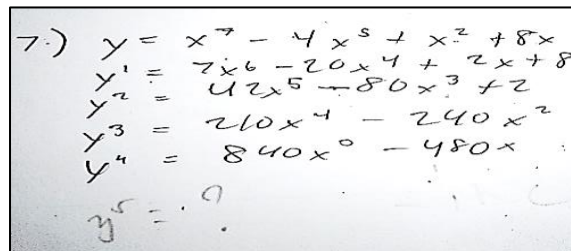 7.) y = x⁷ - 4x⁵ + x² + 8x
y¹ = 7x⁶ - 20x⁴ + 2x + 8
y² = 42x⁵ - 80x³ + 2
y³ = 210x⁴ - 240x²
y⁴ = 840x⁰ - 480x
y⁵ = ?